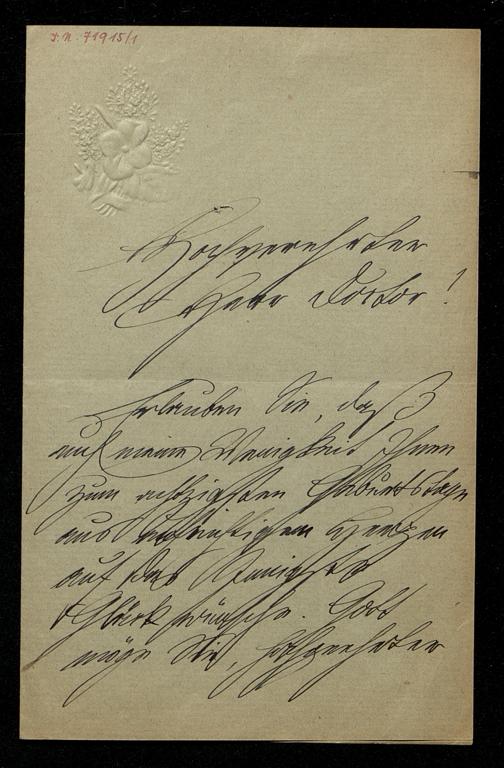 J. N. 71915/1
Hochverehrter
Herr Doctor!
Erlauben Sie, daß
auch meine Wenigkeit Ihnen
zum achtzigsten Geburtstage
aus aufrichtigem Herzen
auf das Innigste
Glück wünsche. Gott
möge Sie, hochgeehrter